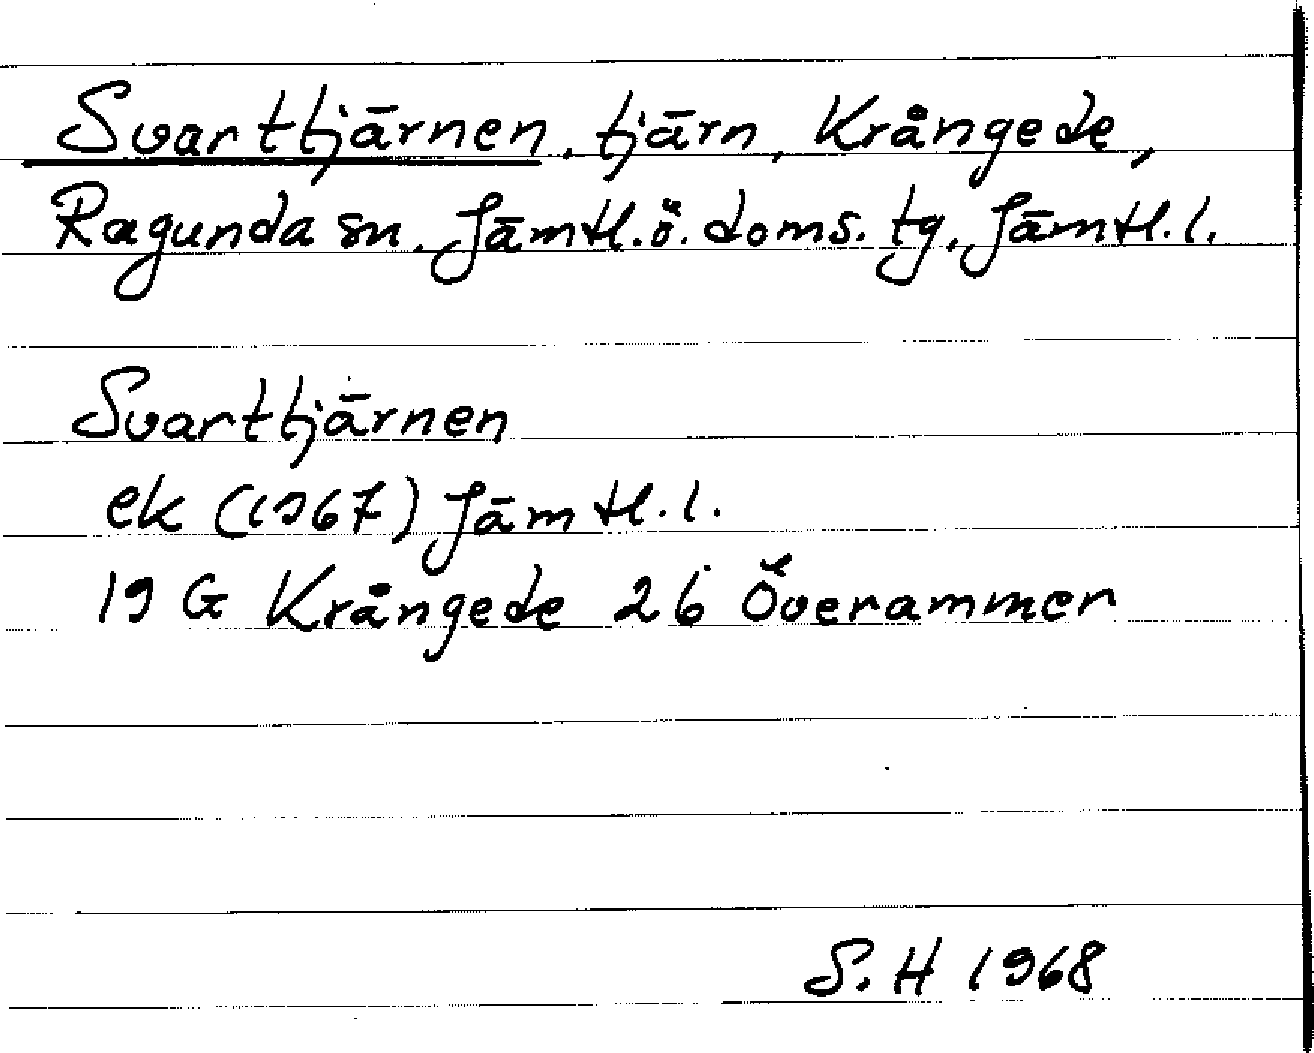 Svarttjärnen, tjärn, Krångede,
Ragunda sn. Jämtl.ö. doms. tg, Jämtl.l.
Svarttjärnen
ek (1967) Jämtl.l.
19 G Krångede 2b Överammer
S. H 1968